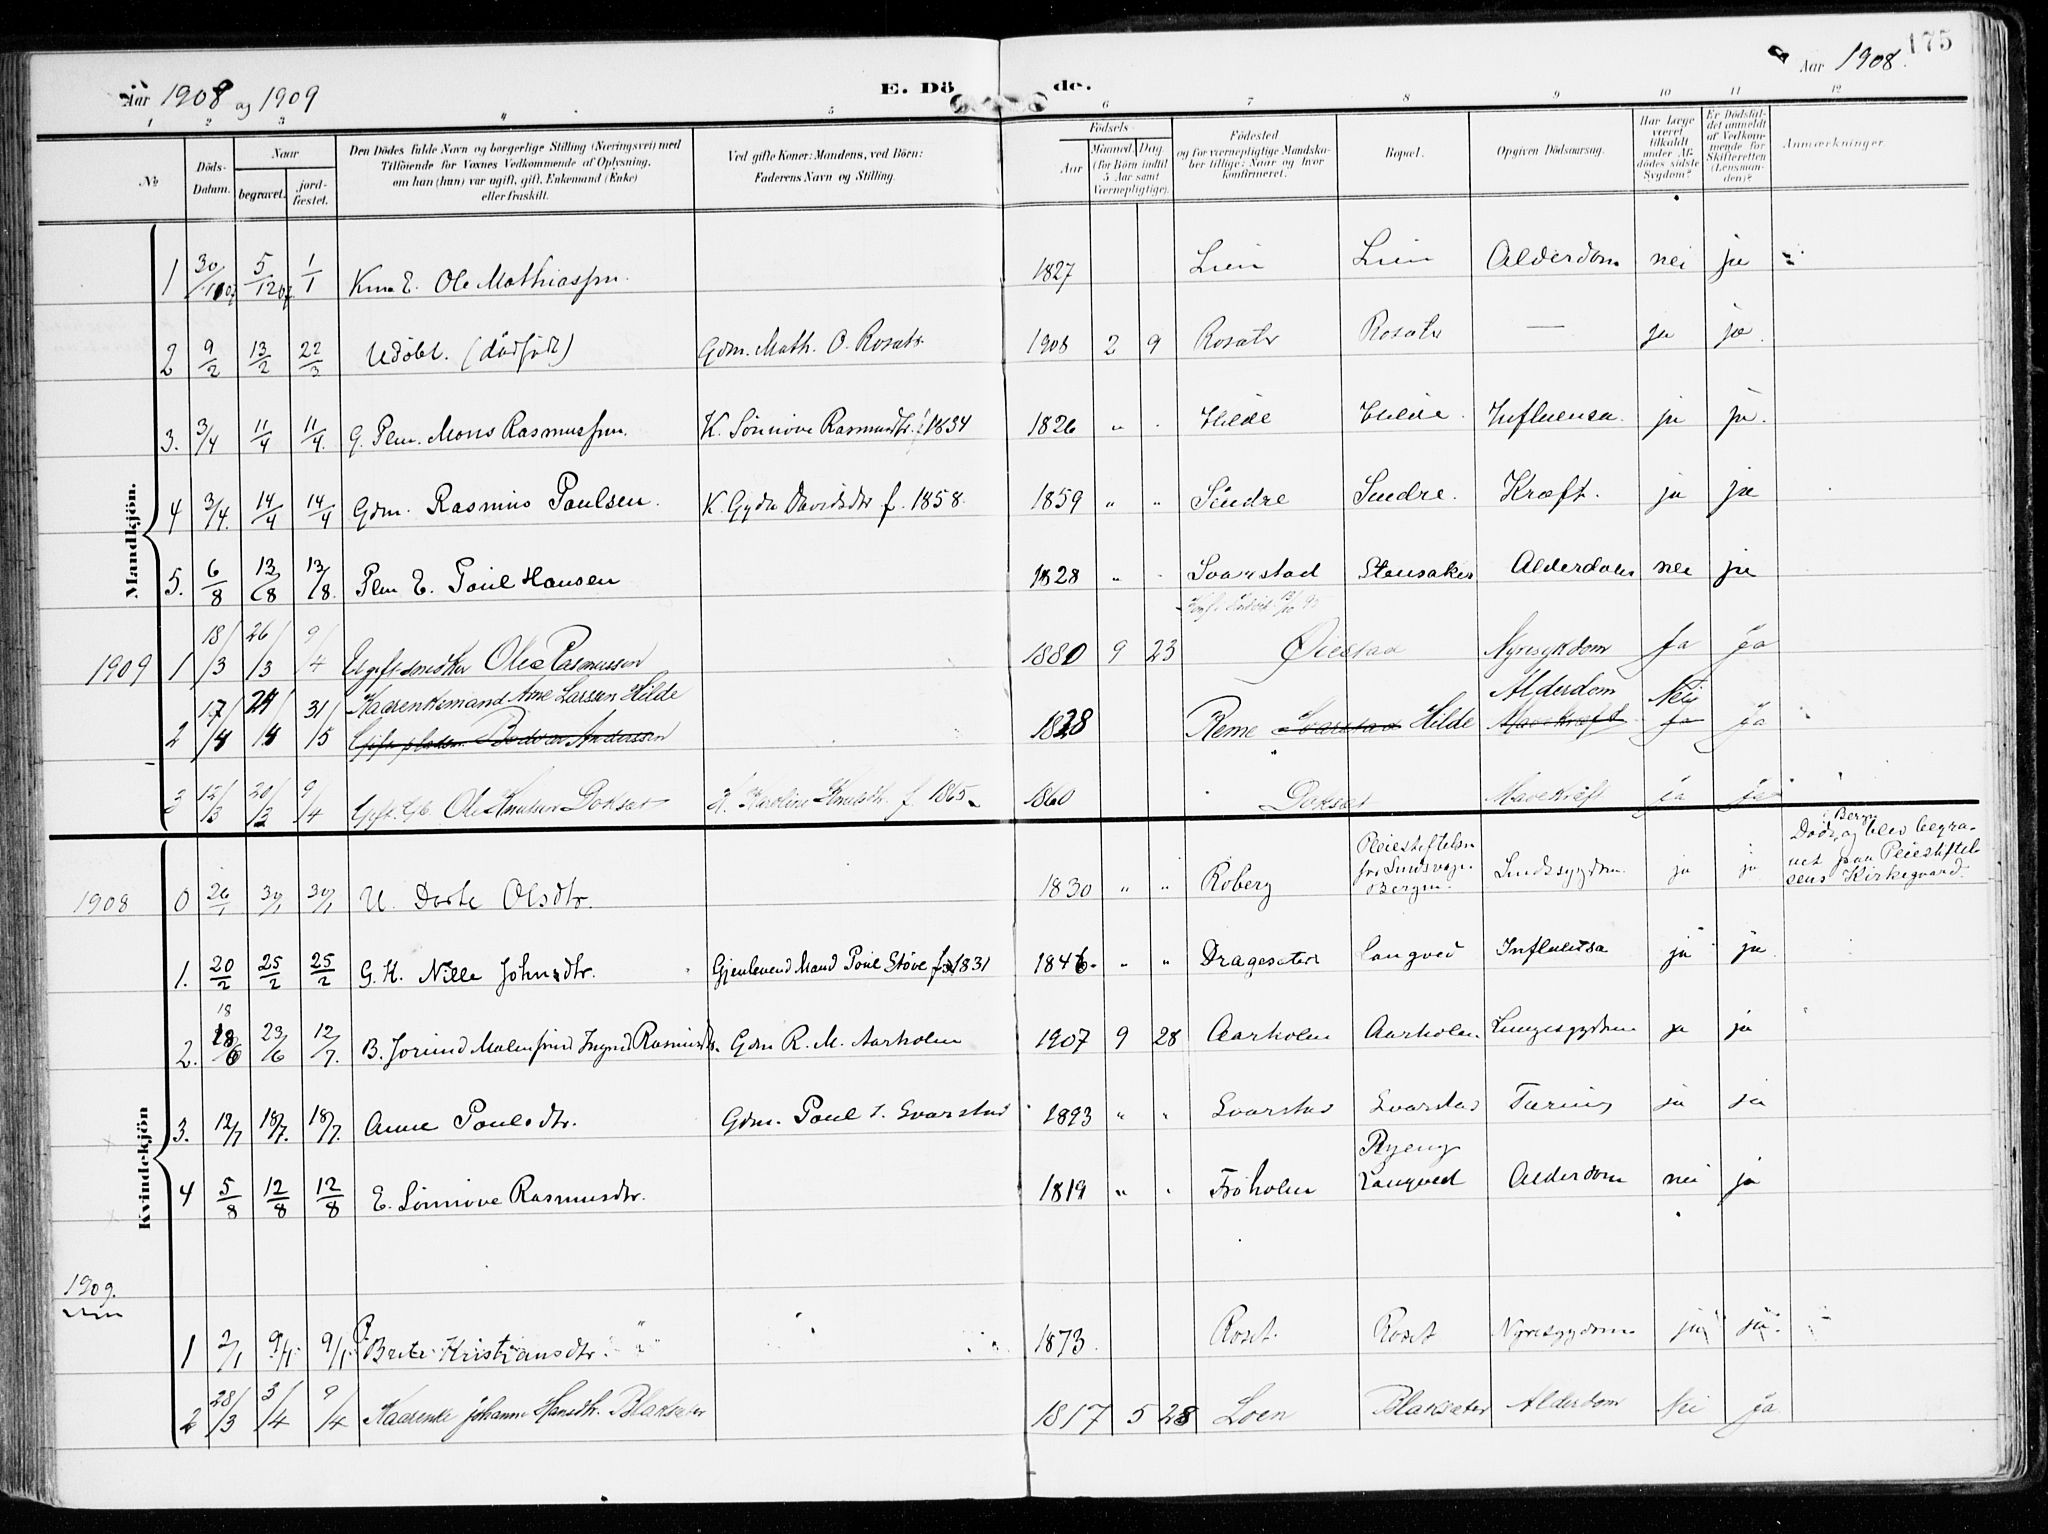 Aar 1908 og 1909
E. Döde.
Aar 1908.
175
1 2 3 4 5 6 7 8 9 10 11 12
No
Döds-Datum.
Naar
begravet.
jordfæstet.
Den Dödes fulde Navn og borgerlige Stilling (Næringsvei) med
Tilföiende for Voxnes Vedkommende af Oplysning,
om han (hun) var ugift, gift, Enkemand (Enke)
eller fraskilt.
Ved gifte Koner: Mandens, ved Börn:
Faderens Navn og Stilling.
Födsels-
Aar
Maaned. Dag.
(for Börn indtil
5 Aar samt
Værnepligtige).
Födested
og for værnepligtige Mandskaber tillige: Naar og hvor
konfirmeret.
Bopæl.
Opgiven Dödsaarsag.
Har Læge
været
tilkaldt
under Afdödes sidste
Sygdom?
Er Dödsfaldet anmeldt
af Vedkommende for
Skifteretten
(Lensmanden)?
Anmærkninger.
Mandkjön.
1 30/11 07 5/12 07 1/1 Kma E. Ole Mathiassen. 1827 Lien Lien Alderdom nei ja
2 9/2 13/2 22/3 Udöbt. (dödfödt) Gdm. Math. O. Rosæter 1908 2 9 Rosæter Rosæter — ja ja.
3. 3/4 11/4 11/4. G. Plm. Mons Rasmussen. K. Sönnöve Rasmusdtr. f. 1834 1826 " Hilde Hilde. Influensa. ja ja.
4 3/4. 14/4 14/4 Gdm. Rasmus Paulsen. K. Gyda Davidsdtr f. 1858. 1859 " " Sindre Sindre. Kræft. ja ja
5. 6/8 13/8 13/8. Plm E. Poul Hansen 1828 " Svarstad Stensaker Alderdom nei ja
1909 1 18/3 26/3 9/4 Ugift snedker Ole Rasmussen 1880 9 23 Øiestad Nyresykdom Ja Ja
Kaarenkemand Arne Larssen Hilde Alderdom Nei
2 17/4 24/4 31/5 Gift pladsm. Anderssen 1828 Reme Svarstad Hilde Mavekræft Ja Ja
3 12/3 20/3 9/4 Gift. Gb. Ole Knutsen Doksæt K. Karoline Knudsdtr. f. 1865. 1860 Doksæt Mavekræft ja ja
1908 0 26/1 30/1 30/1 U. Dorte Olsdtr. 1830 " " Roberg Pleiestiftelsen for Sindssvage. Bergen. Sindssygdom. ja ja Döde, og blev begravet paa Pleiestiftelsens Kirkegaard. i Bergen
Kvindekjön
1. 20/2 25/2 25/2 G. K. Nille Johnsdtr. Gjenlevend Mand Poul Støve f. 1831 1846. " " Dragesæter Langved Influensa ja ja
18
2. 18/6 23/6 12/7. B. Jorund Malenfrid Ingrid Rasmusdtr. Gdm R. M. Aarholen 1907 9 28 Aarholen Aarholen Lungesygdom ja ja
3. 12/7 18/7. 18/7. Anne Poulsdtr. Gdm. Poul Svarstad 1893 " " Svarstad Svarstad Tæring ja ja
Ryeng
4 5/8 12/8 12/8 E. Sönnöve Rasmusdtr. 1819 " Fröholen Langved Alderdom nei ja
1909.
1 2/1 9/1. 9/1 P. Brite Kristiansdtr. 1873. Roset. Roset Nyresygdom ja ja.
2 28/3 3/4 9/4 Kaarenke Johanne Hansdtr. Blaksæter 1817 5 28 Loen Blaksæter Alderdom Nei Ja